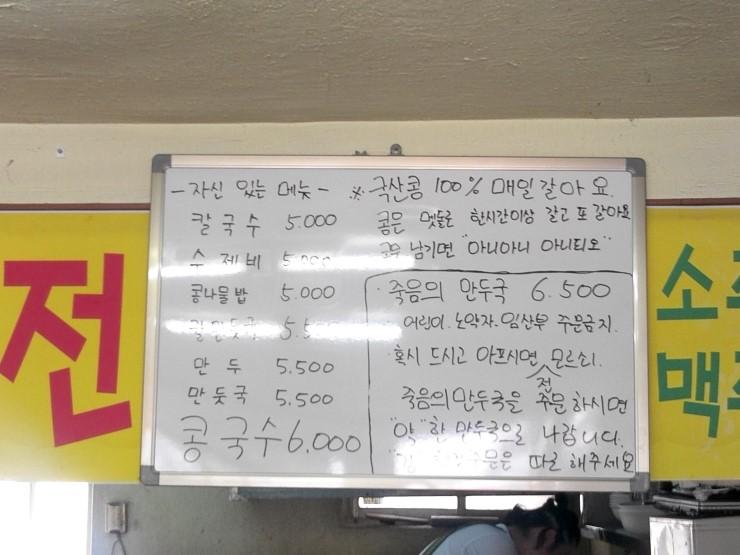 - 자신 있는 메뉴 -
칼국수 5.000
수제비 5.000
콩나물밥 5.000
만두 5,500
만둣국 5,500
콩국수 6.000
※ 국산콩 100% 매일 갈아요.
콩은 멧돌로 한시간이상 갈고 또 갈아요
남기면 "아니아니 아니되오"
· 죽음의 만두국 6.500
· 어린이. 노약자. 임산부 주문금지.
· 혹시 드시고 아프시면 전 모르쇠.
죽음의만두국을 주문하시면
"악"한 만두국으로 나갑니다.
주문은 따로 해주세요
전
소
맥